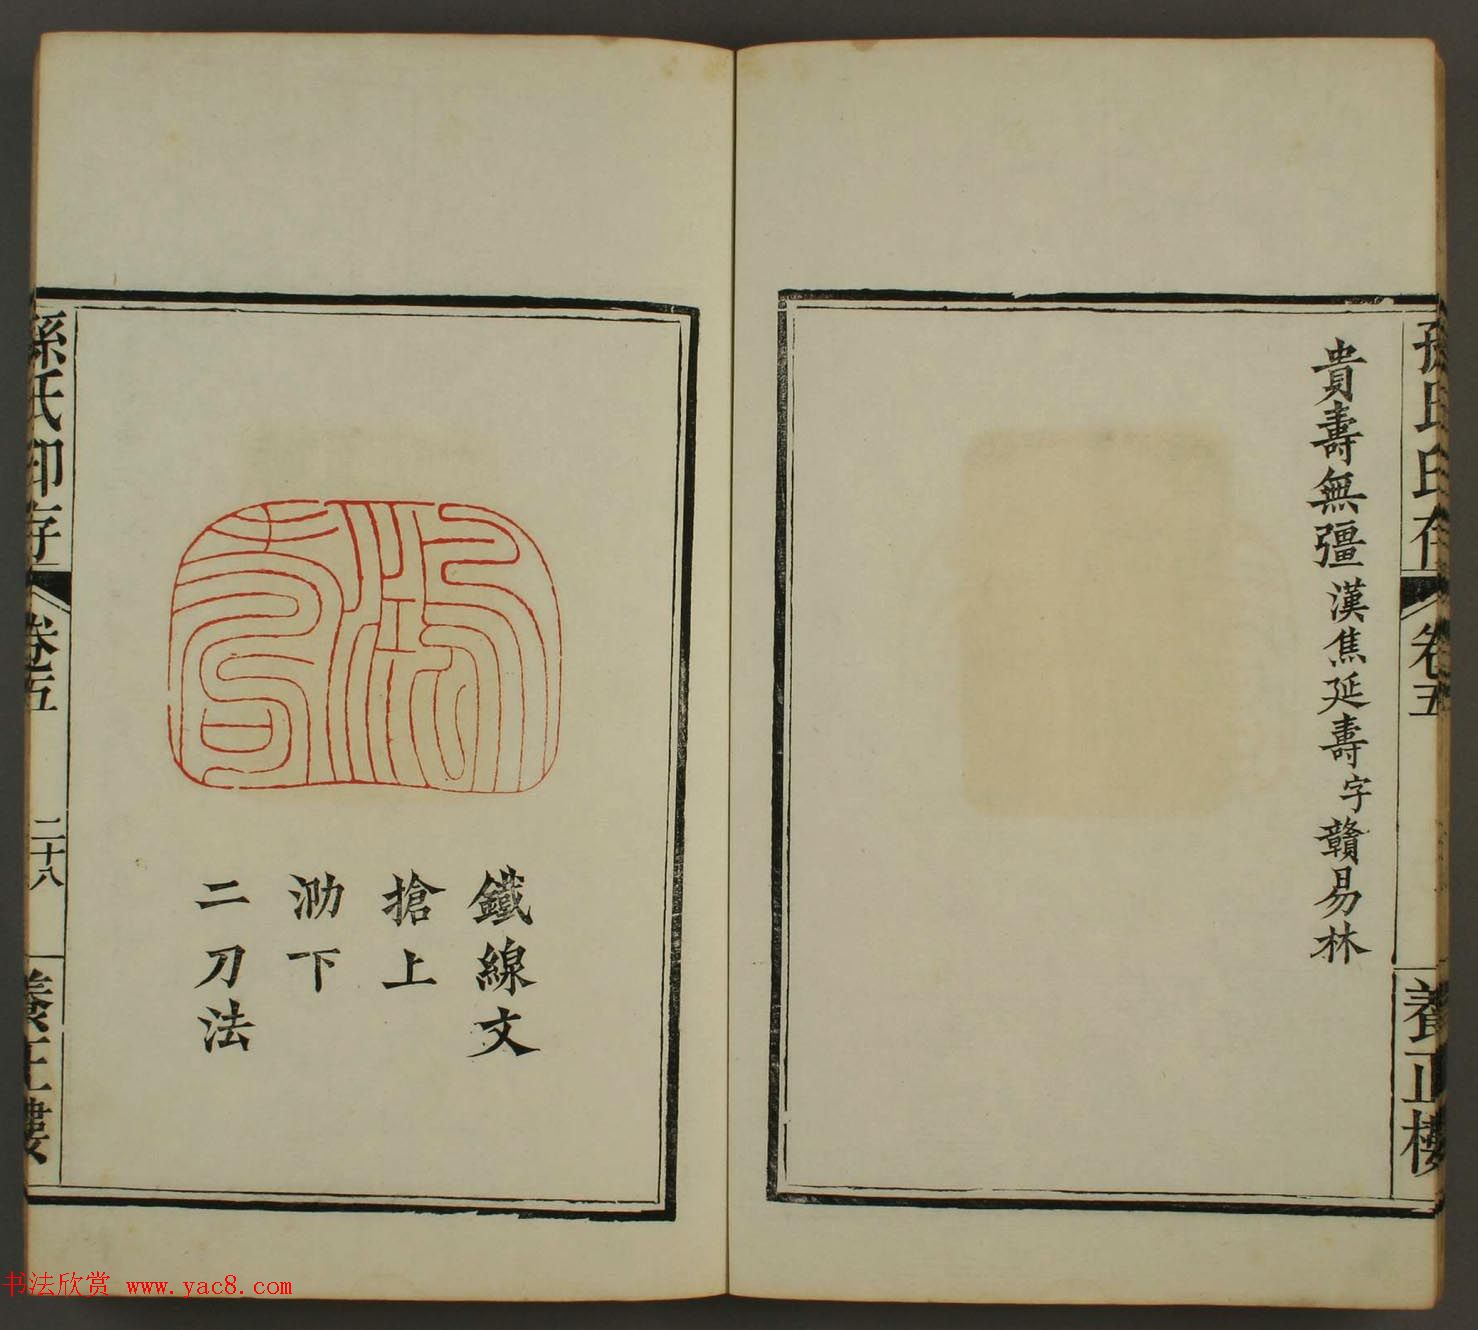 孫氏印存
卷五
養正樓
貴壽無彊漢焦延壽字贛易林
鐵線文
搶上
泐下
二刀法
孫氏印存
卷五
二十八
養正樓
书法欣赏 www.yac8.com